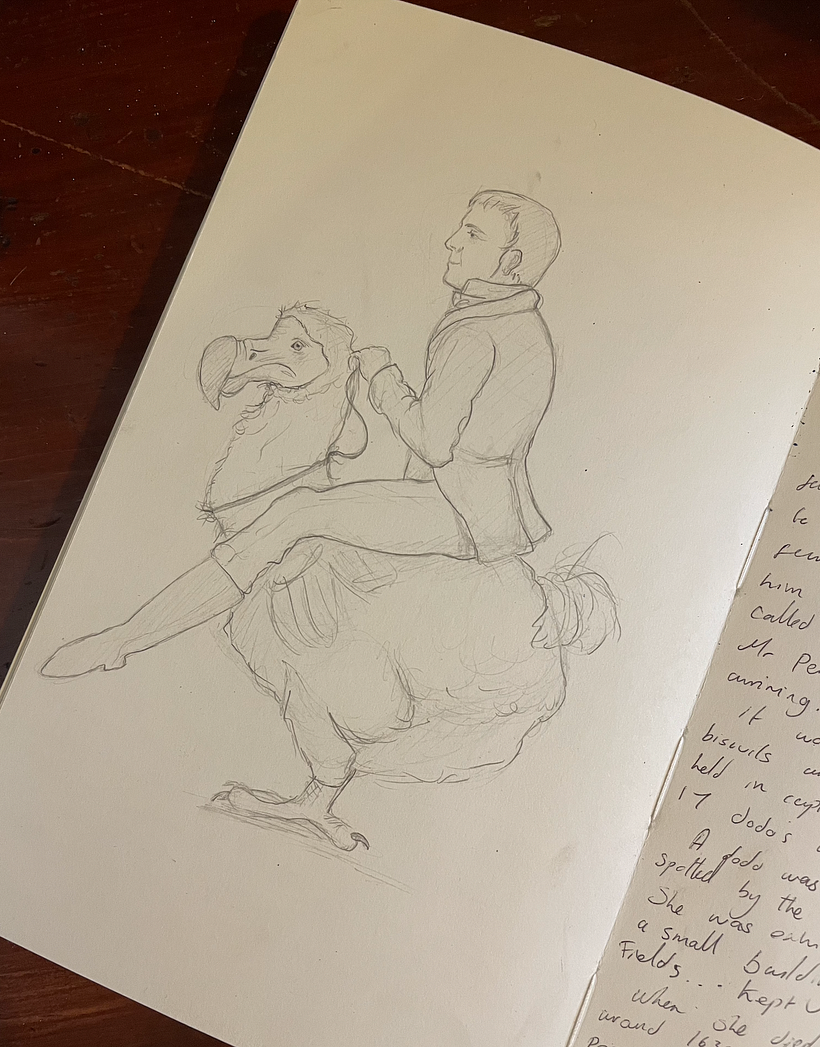 be
him
called
Mr Pe
arriving.
it wo
biscuits
held in capt
17 dodo's
A dodo was
spotted by the
She was
a small buildi
Fields... Kept
when she died
around 163